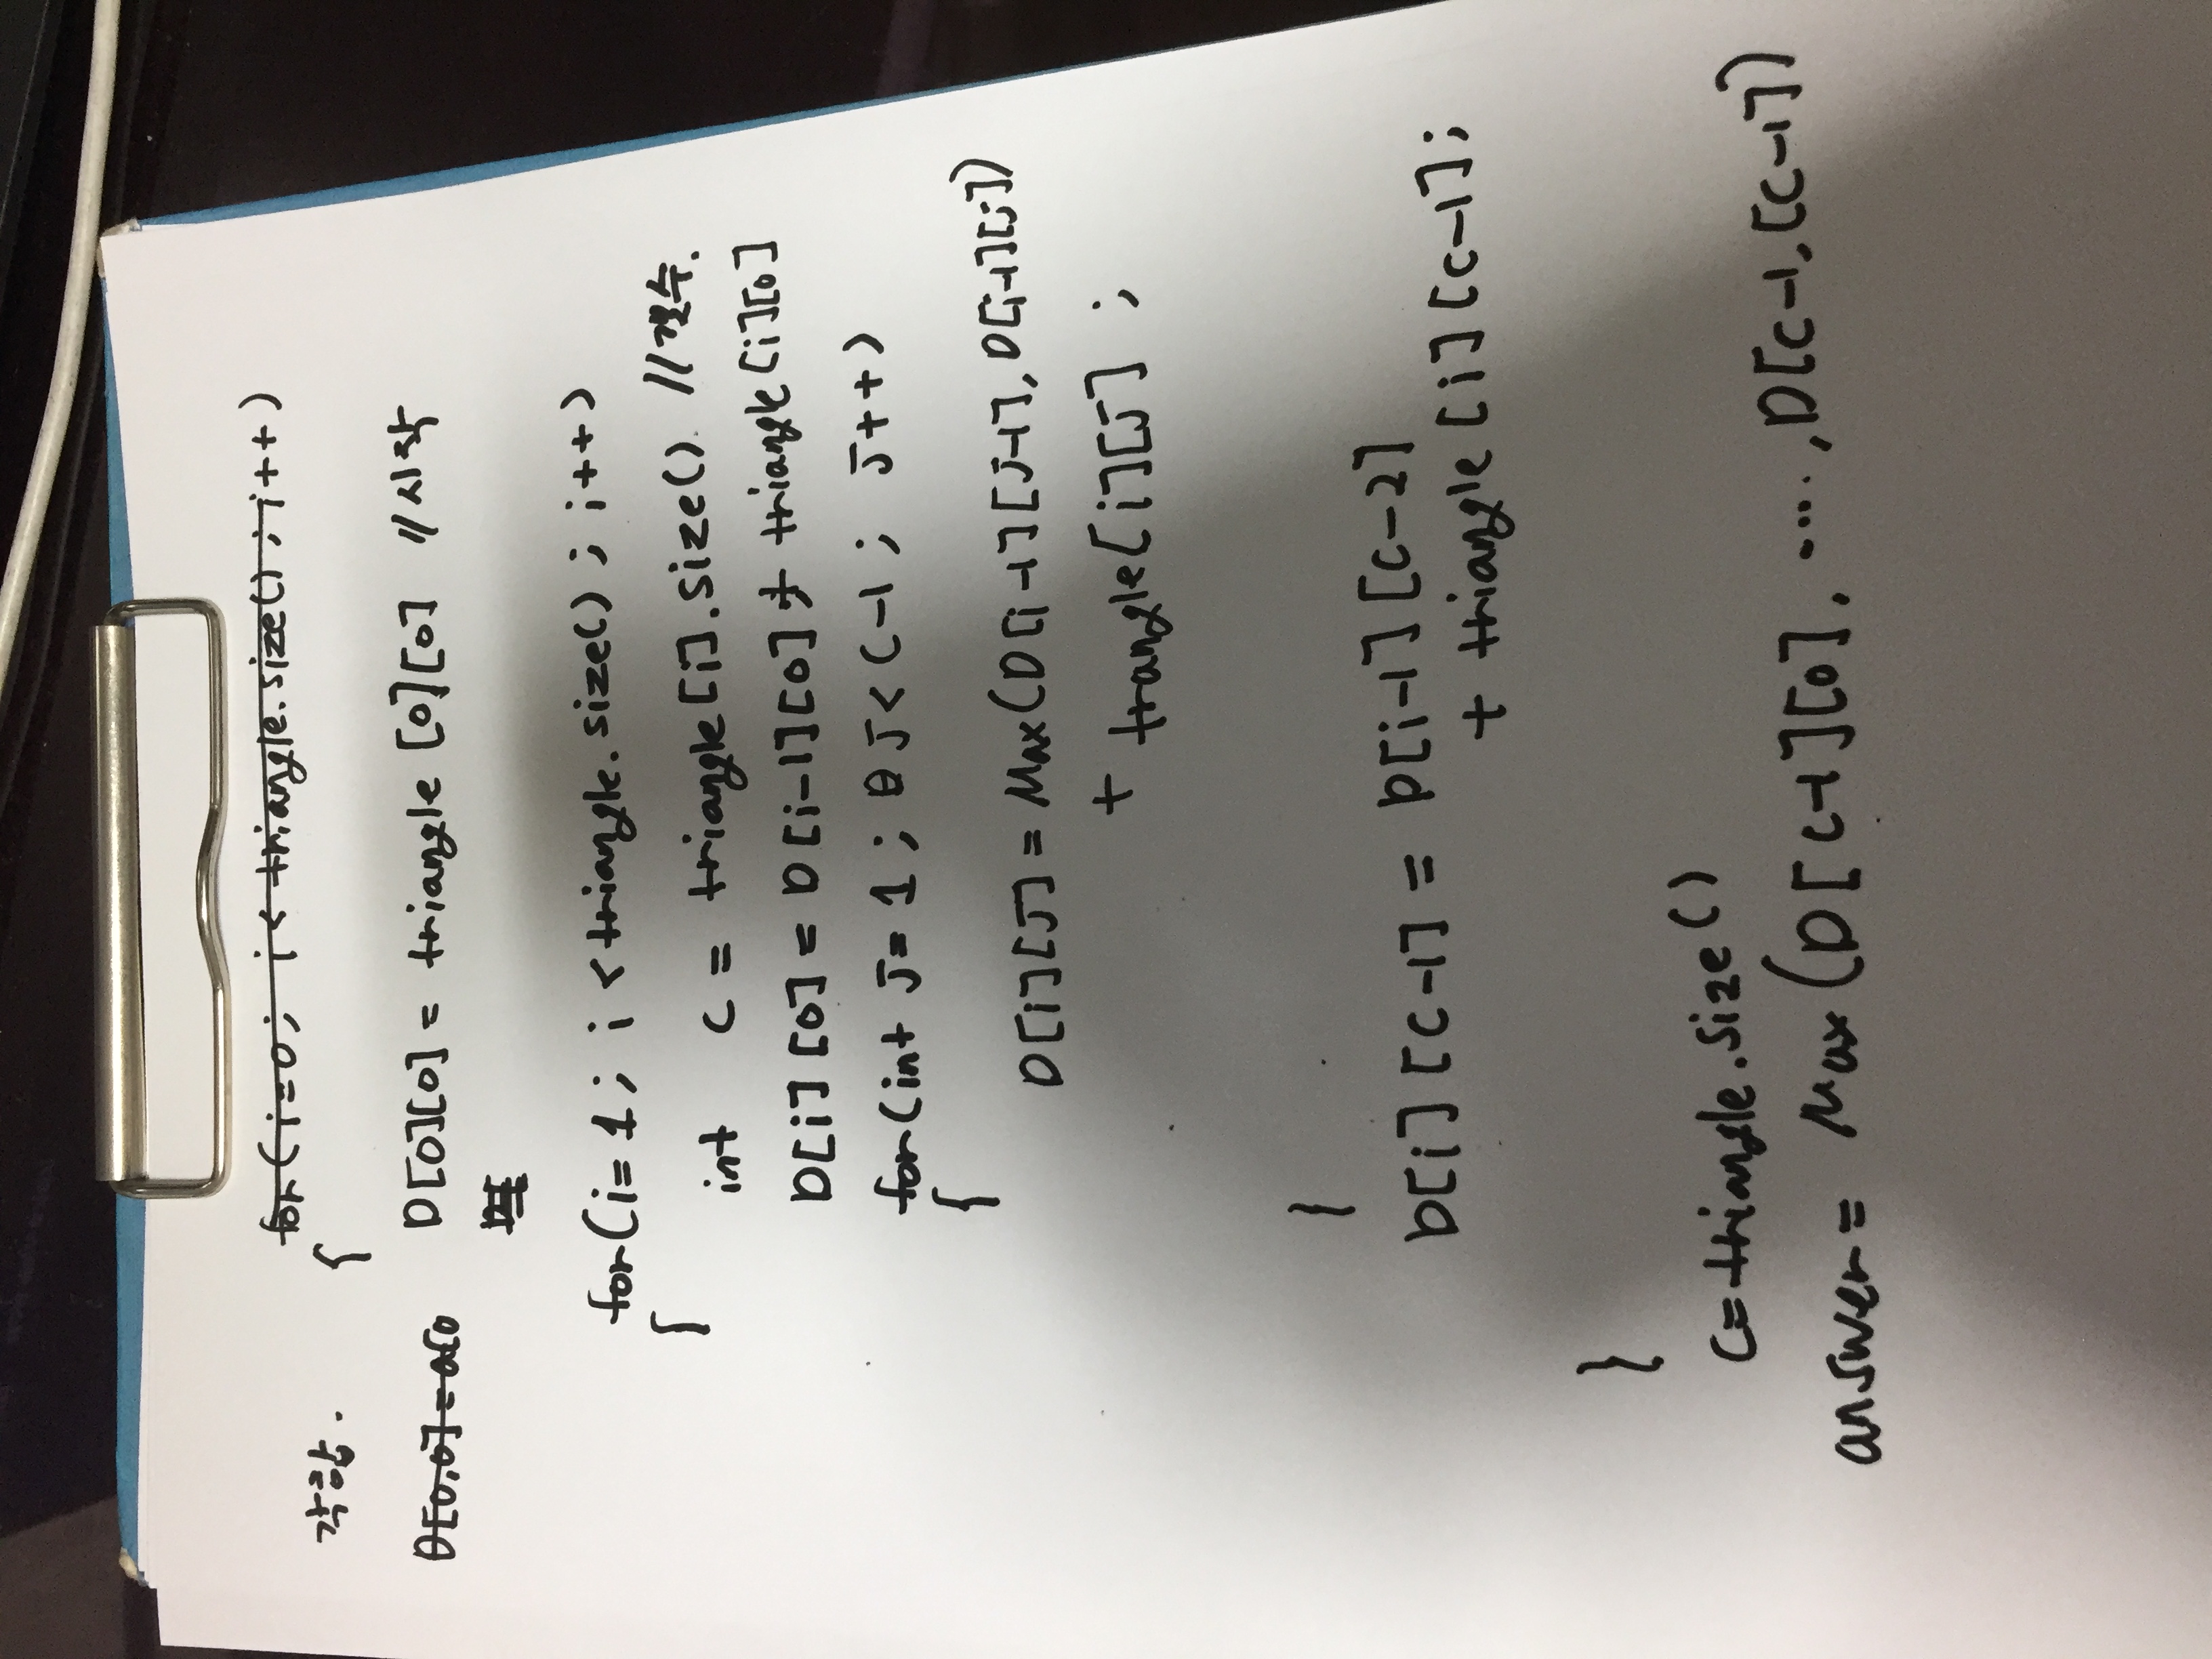 for(i=0; i< triangle.size() ; i++)
각합.
{
D[0,0]=a[0
D[0][0] = triangle [0][0] //시작
for(i=1; i<triangle.size() ; i++)
{
int c = triangle[i].size() //갯수.
D[i][0] = D[i-1][0] + triangle[i][0]
for(int j=1 ; j< c-1 ; j++)
{
D[i][j] = Max(D[i-1][j-1], D[i-1][j])
+ trangle[i][j] ;
}
D[i][c-1] = D[i-1][c-2]
+ triangle[i][c-1];
}
c=triangle.size()
answer= Max(D[c-1][0], ....,D[c-1,[c-1])